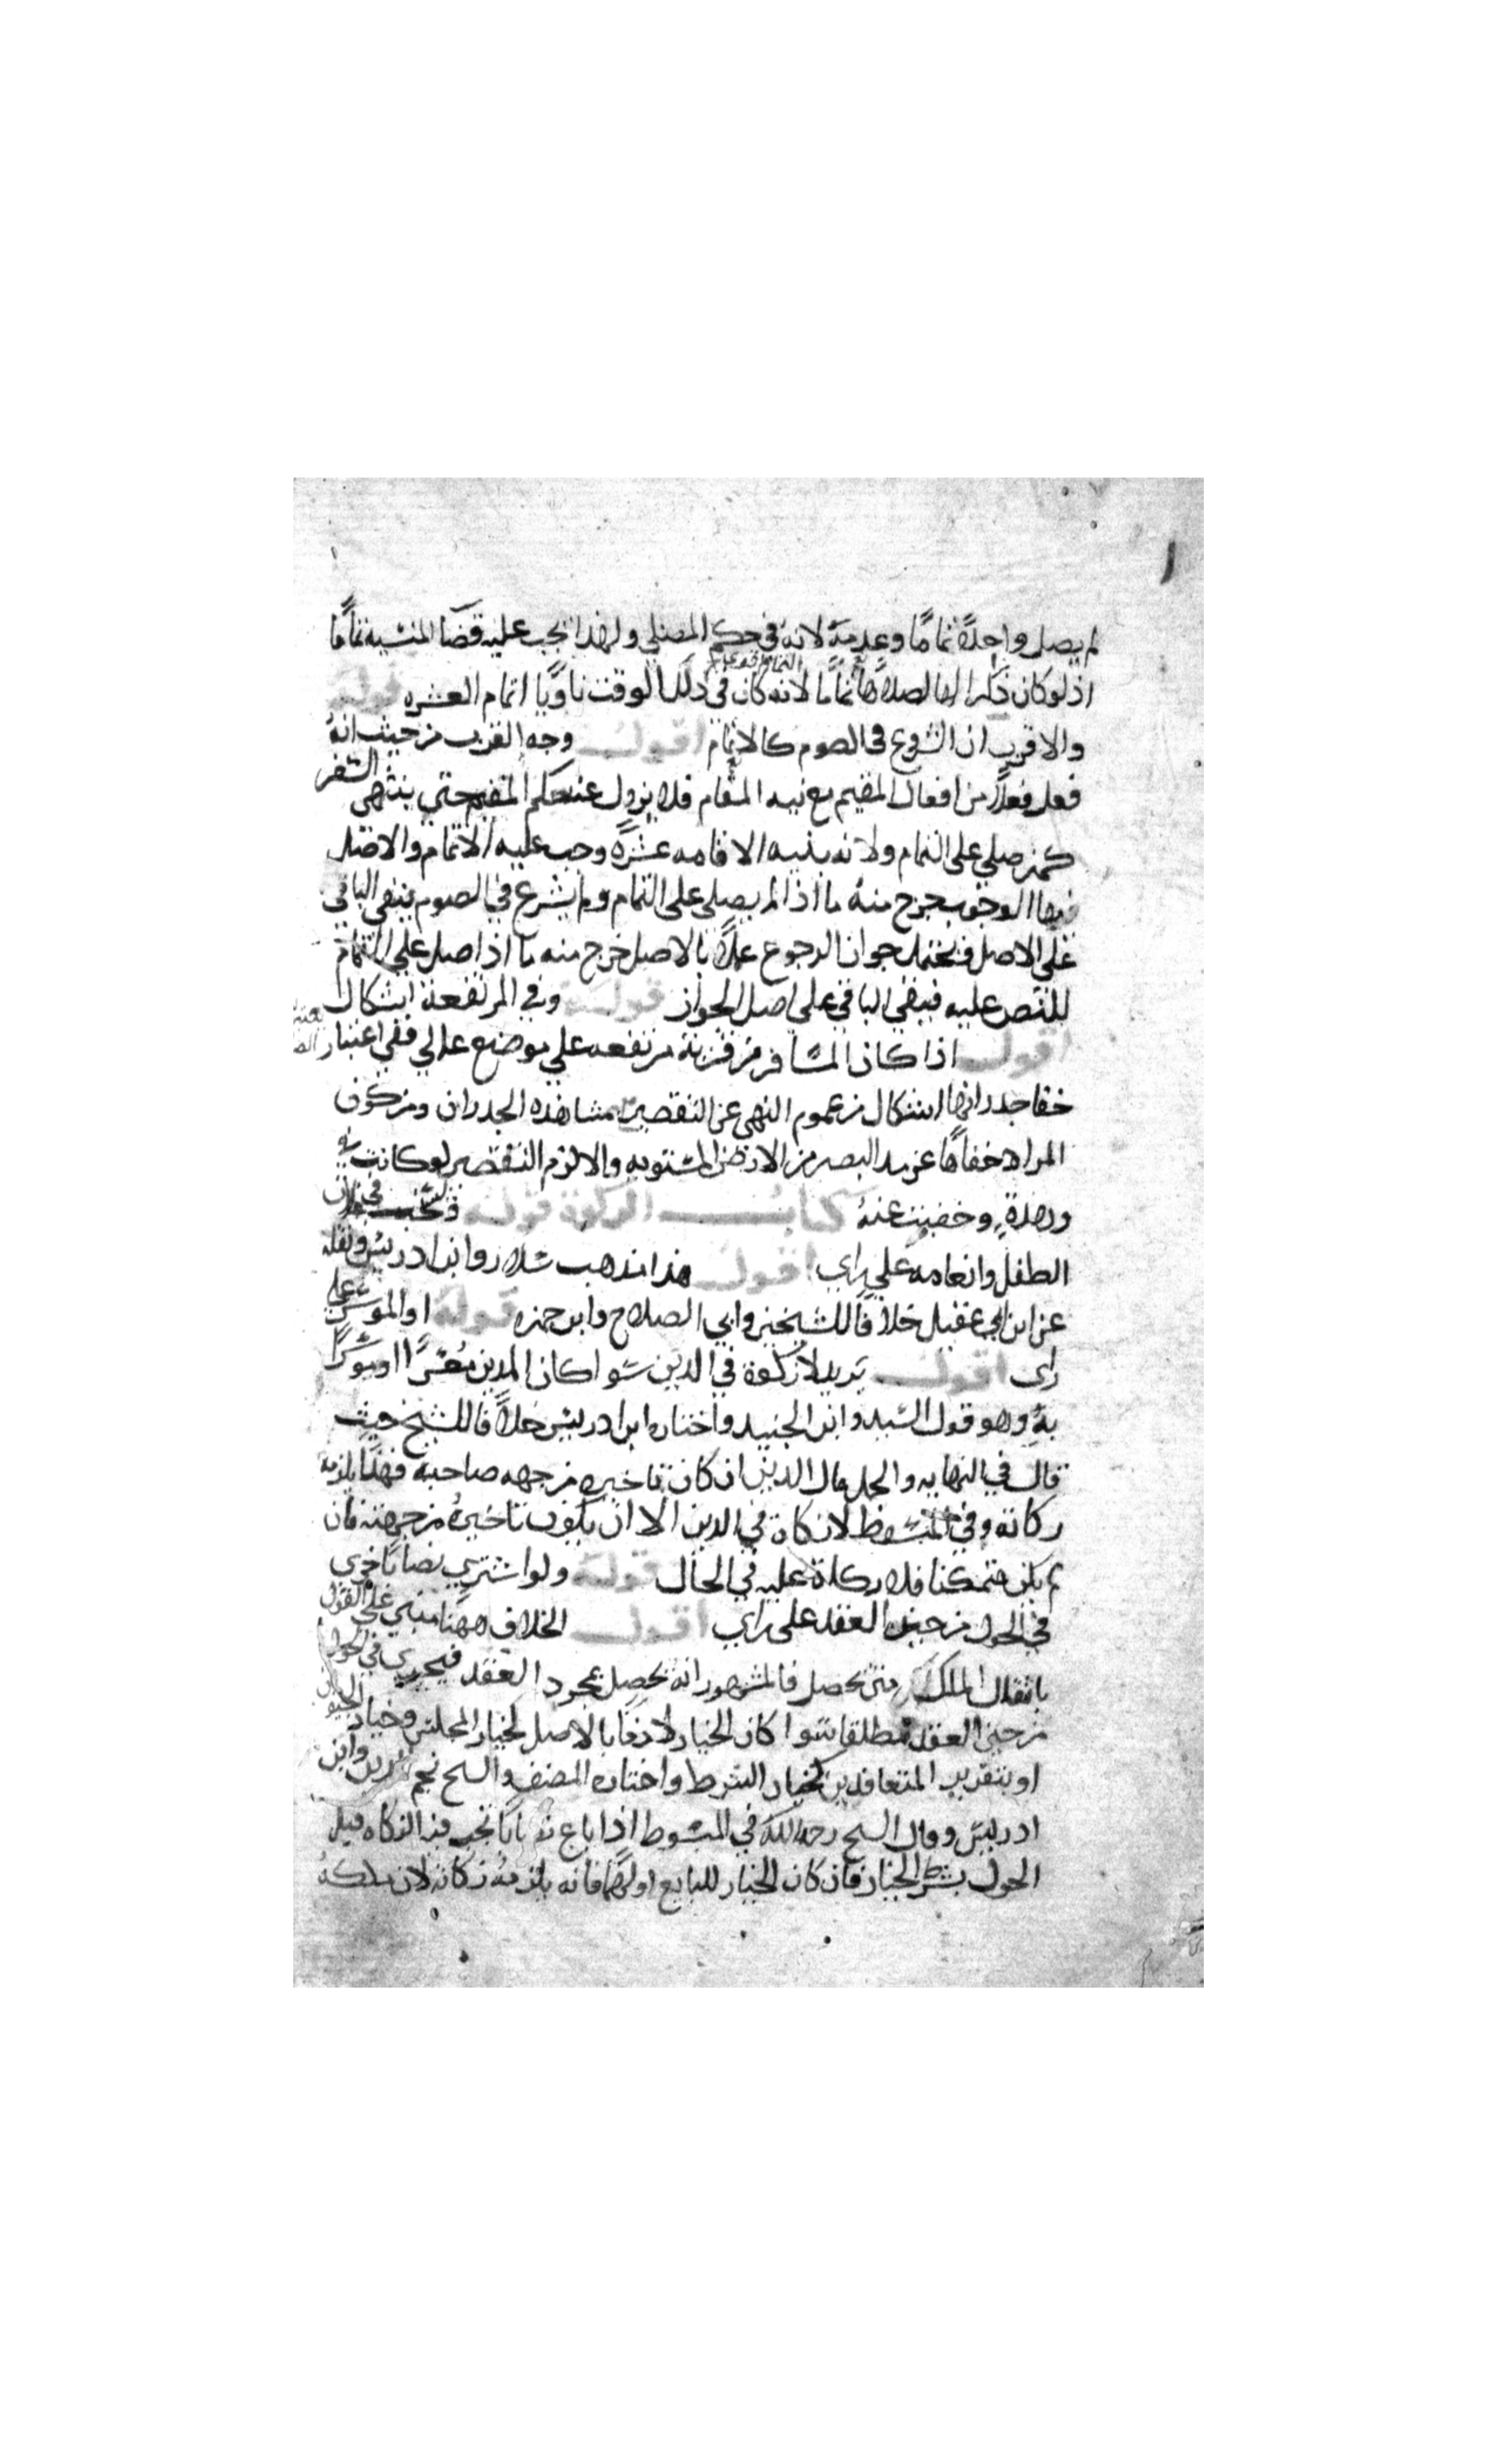 لم يصل واحدة تماما وعدمه لانه في حكم المصلي ولهذا تجب عليه قضا المنسيه تماما
اذ لو كان ذاكرا لها لصلاها تماما لانه كان في ذلك الوقت ناويا اتمام العشره قوله
والاقرب ان الشروع في الصوم كالاتمام اقول وجه القرب من حيث انه
فعل فعلا من افعال المقيم مع نيه المقام فلا يزول عنه حكم المقيم حتي ينتهي السفر
كمن صلي علي التمام ولانه بنيه الاقامه عشرة وجب عليه الاتمام والاصل
فيها الوجوب خرج منه ما اذا لم يصلي علي التمام ولم يشرع في الصوم يبقي الباقي
علي الاصل ويحتمل جواز الرجوع عملا بالاصل خرج منه ما اذا صلي علي التمام
للنص عليه فيبقي الباقي علي اصل الجواز قوله وفي المرتفعة اشكال
اقول اذا كان المسافر من قرية مرتفعه علي موضع عالي ففي اعتبار
خفا جدرانها اشكال من عموم النهي عن التقصير مشاهده الجدران ومن كون
المراد خفاها عن مد البصر من الارض المستويه والا لزم التقصير لو كانت في
وهدة وخفيت عنه كتاب الزكوة قوله في غلات
الطفل وانعامه علي راي اقول هذا مذهب سلار وابن ادريس ونقله
عن ابن ابي عقيل خلافا للشيخين وابي الصلاح وابن حمزه قوله او الموسر علي
راي اقول يريد لا زكوة في الدين سوا كان المدين معسرا او موسرا
به وهو قول السيد وابن الجنيد واختاره ابن ادريس خلافا للشيخ حيث
قال في النهايه والجمل مال الدين ان كان تاخيره من جهه صاحبه فهذا يلزمه
زكاته وفي المبسوط لا زكاة في الدين الا ان يكون تاخيره من جهته فان
لم يكن متمكنا فلا زكاة عليه في الحال قوله ولو اشتري نصابا جري
في الحول من حين العقد علي راي اقول الخلاف ههنا مبني علي القول
بانتقال الملك متي يحصل فالمشهور انه يحصل بمجرد العقد فيجري في الحول
من حين العقد مطلقا سوا كان الخيار لاحقا بالاصل كخيار المجلس وخيار الحيوان
او بتقدير المتعاقدين كخيار الشرط واختاره المصنف والشيخ نجم الدين وابن
ادريس وقال الشيخ رحمه الله في المبسوط اذا باع نصابا تجب فيه الزكاه قبل
الحول بشرط الخيار فان كان الخيار للبايع او لهما فانه يلزمه زكاته لان ملكه